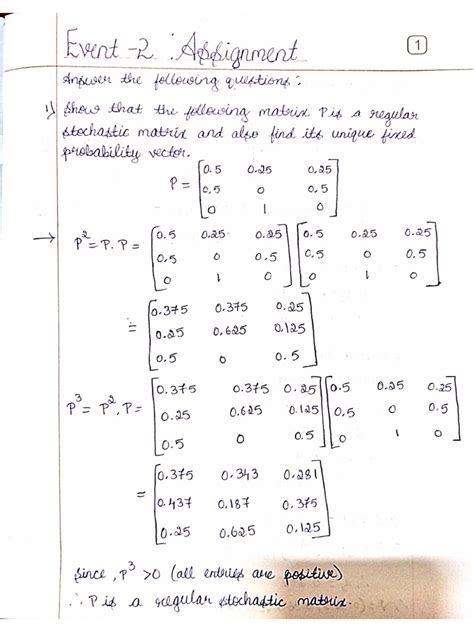 Event-2 : Assignment
1
Answer the following questions:
1) Show that the following matrix P is a regular
stochastic matrix and also find its unique fixed
probability vector.
P = [0.5 0.25 0.25
0.5 0 0.5
0 1 0]
→ P² = P.P = [0.5 0.25 0.25 [0.5 0.25 0.25
0.5 0 0.5 0.5 0 0.5
0 1 0] 0 1 0]
= [0.375 0.375 0.25
0.25 0.625 0.125
0.5 0 0.5]
P³ = P².P = [0.375 0.375 0.25 [0.5 0.25 0.25
0.25 0.625 0.125 0.5 0 0.5
0.5 0 0.5] 0 1 0]
= [0.375 0.343 0.281
0.437 0.187 0.375
0.25 0.625 0.125]
Since, P³ >0 (all entries are positive)
∴ P is a regular stochastic matrix.